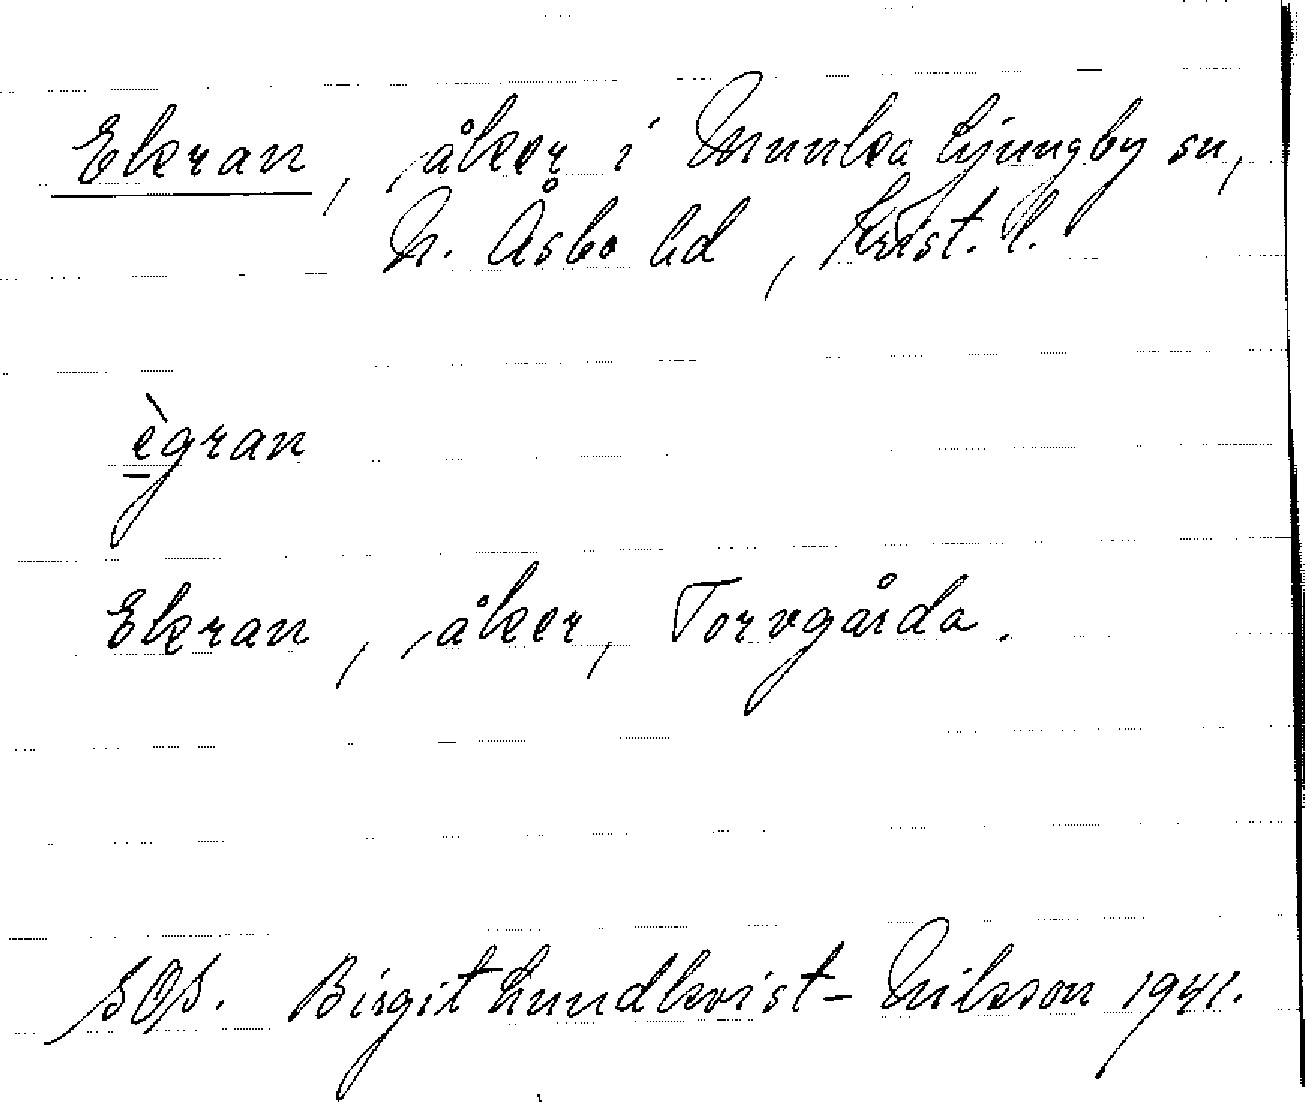 Ekran, åker i Munka Ljungby sn,
N. Åsbo hd, Krist. l.
ègran
Ekran, åker, Torvgårda.
SOS. Birgit Lundkvist-Nilsson 1941.